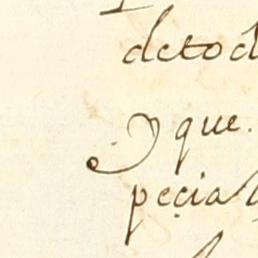 de to d
y que.
pecial